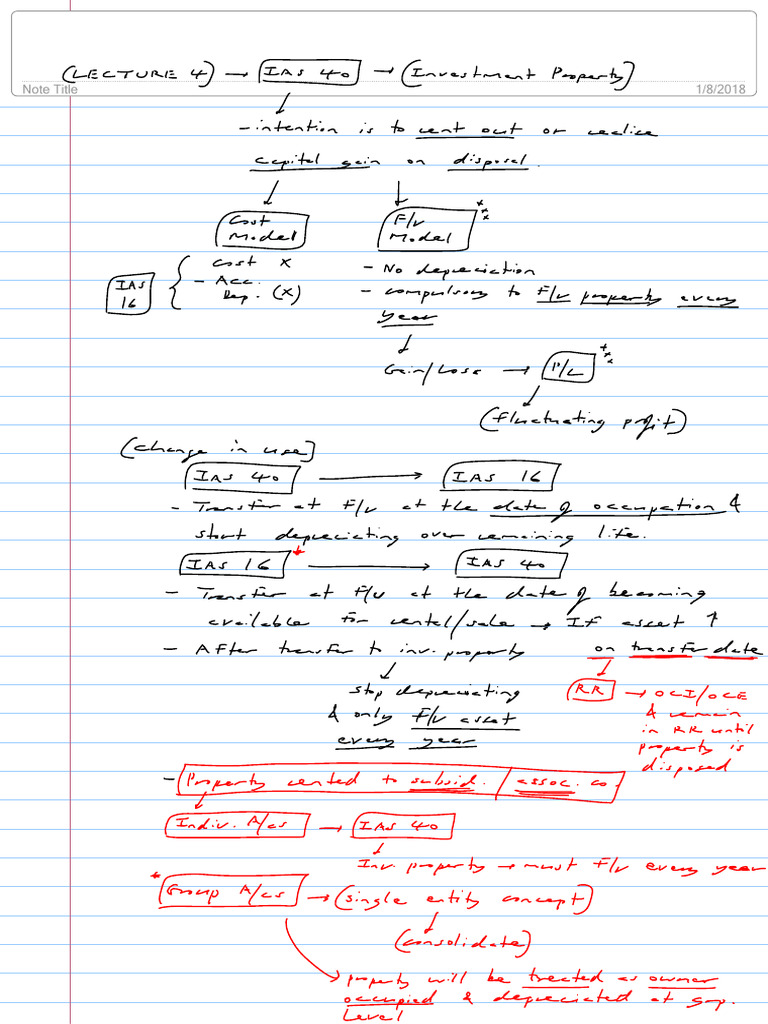 (LECTURE 4) → IAS 40 → (Investment Property)
Note Title 1/8/2018
- intention is to rent out or realise
capital gain on disposal.
Cost Model
F/V Model ***
IAS 16 { Cost X
- Acc. Dep. (X)
- No depreciation
- compulsory to F/V property every
year
Gain/Loss → P/L ***
(fluctuating profit)
(change in use)
IAS 40 → IAS 16
- Transfer at F/V at the date of occupation &
start depreciating over remaining life.
IAS 16 * → IAS 40
- Transfer at F/V at the date of becoming
available for rental/sale → If asset ↑
on transfer date
- After transfer to inv. property
stop depreciating
& only F/V asset
every year
RR → OCI/OCE
& remain
in RR until
property is
disposed
- Property rented to subsid. / assoc. co.
Indiv. A/cs → IAS 40
Inv. property → must F/V every year
* Group A/cs → (single entity concept)
(consolidate)
→ property will be treated as owner
occupied & depreciated at grp.
level